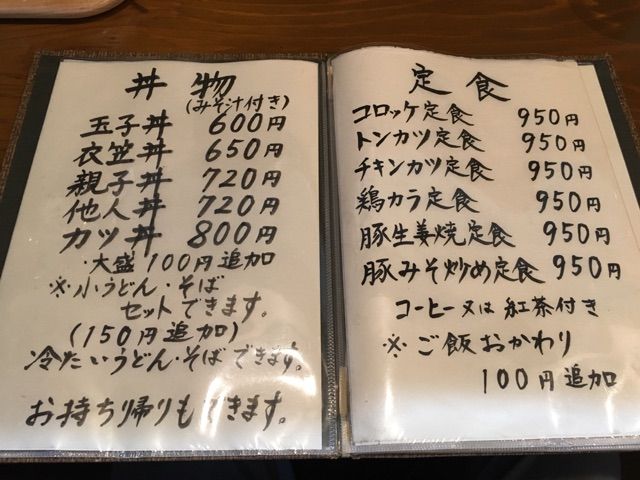 丼物
(みそ汁付き)
玉子丼 600円
衣笠丼 650円
親子丼 720円
他人丼 720円
カツ丼 800円
・大盛100円追加
※小うどん・そば
セットできます。
(150円追加)
冷たいうどん・そばできます。
お持ち帰りもできます。
定食
コロッケ定食 950円
トンカツ定食 950円
チキンカツ定食 950円
鶏カラ定食 950円
豚生姜焼定食 950円
豚みそ炒め定食 950円
コーヒー又は紅茶付き
※ご飯おかわり
100円追加